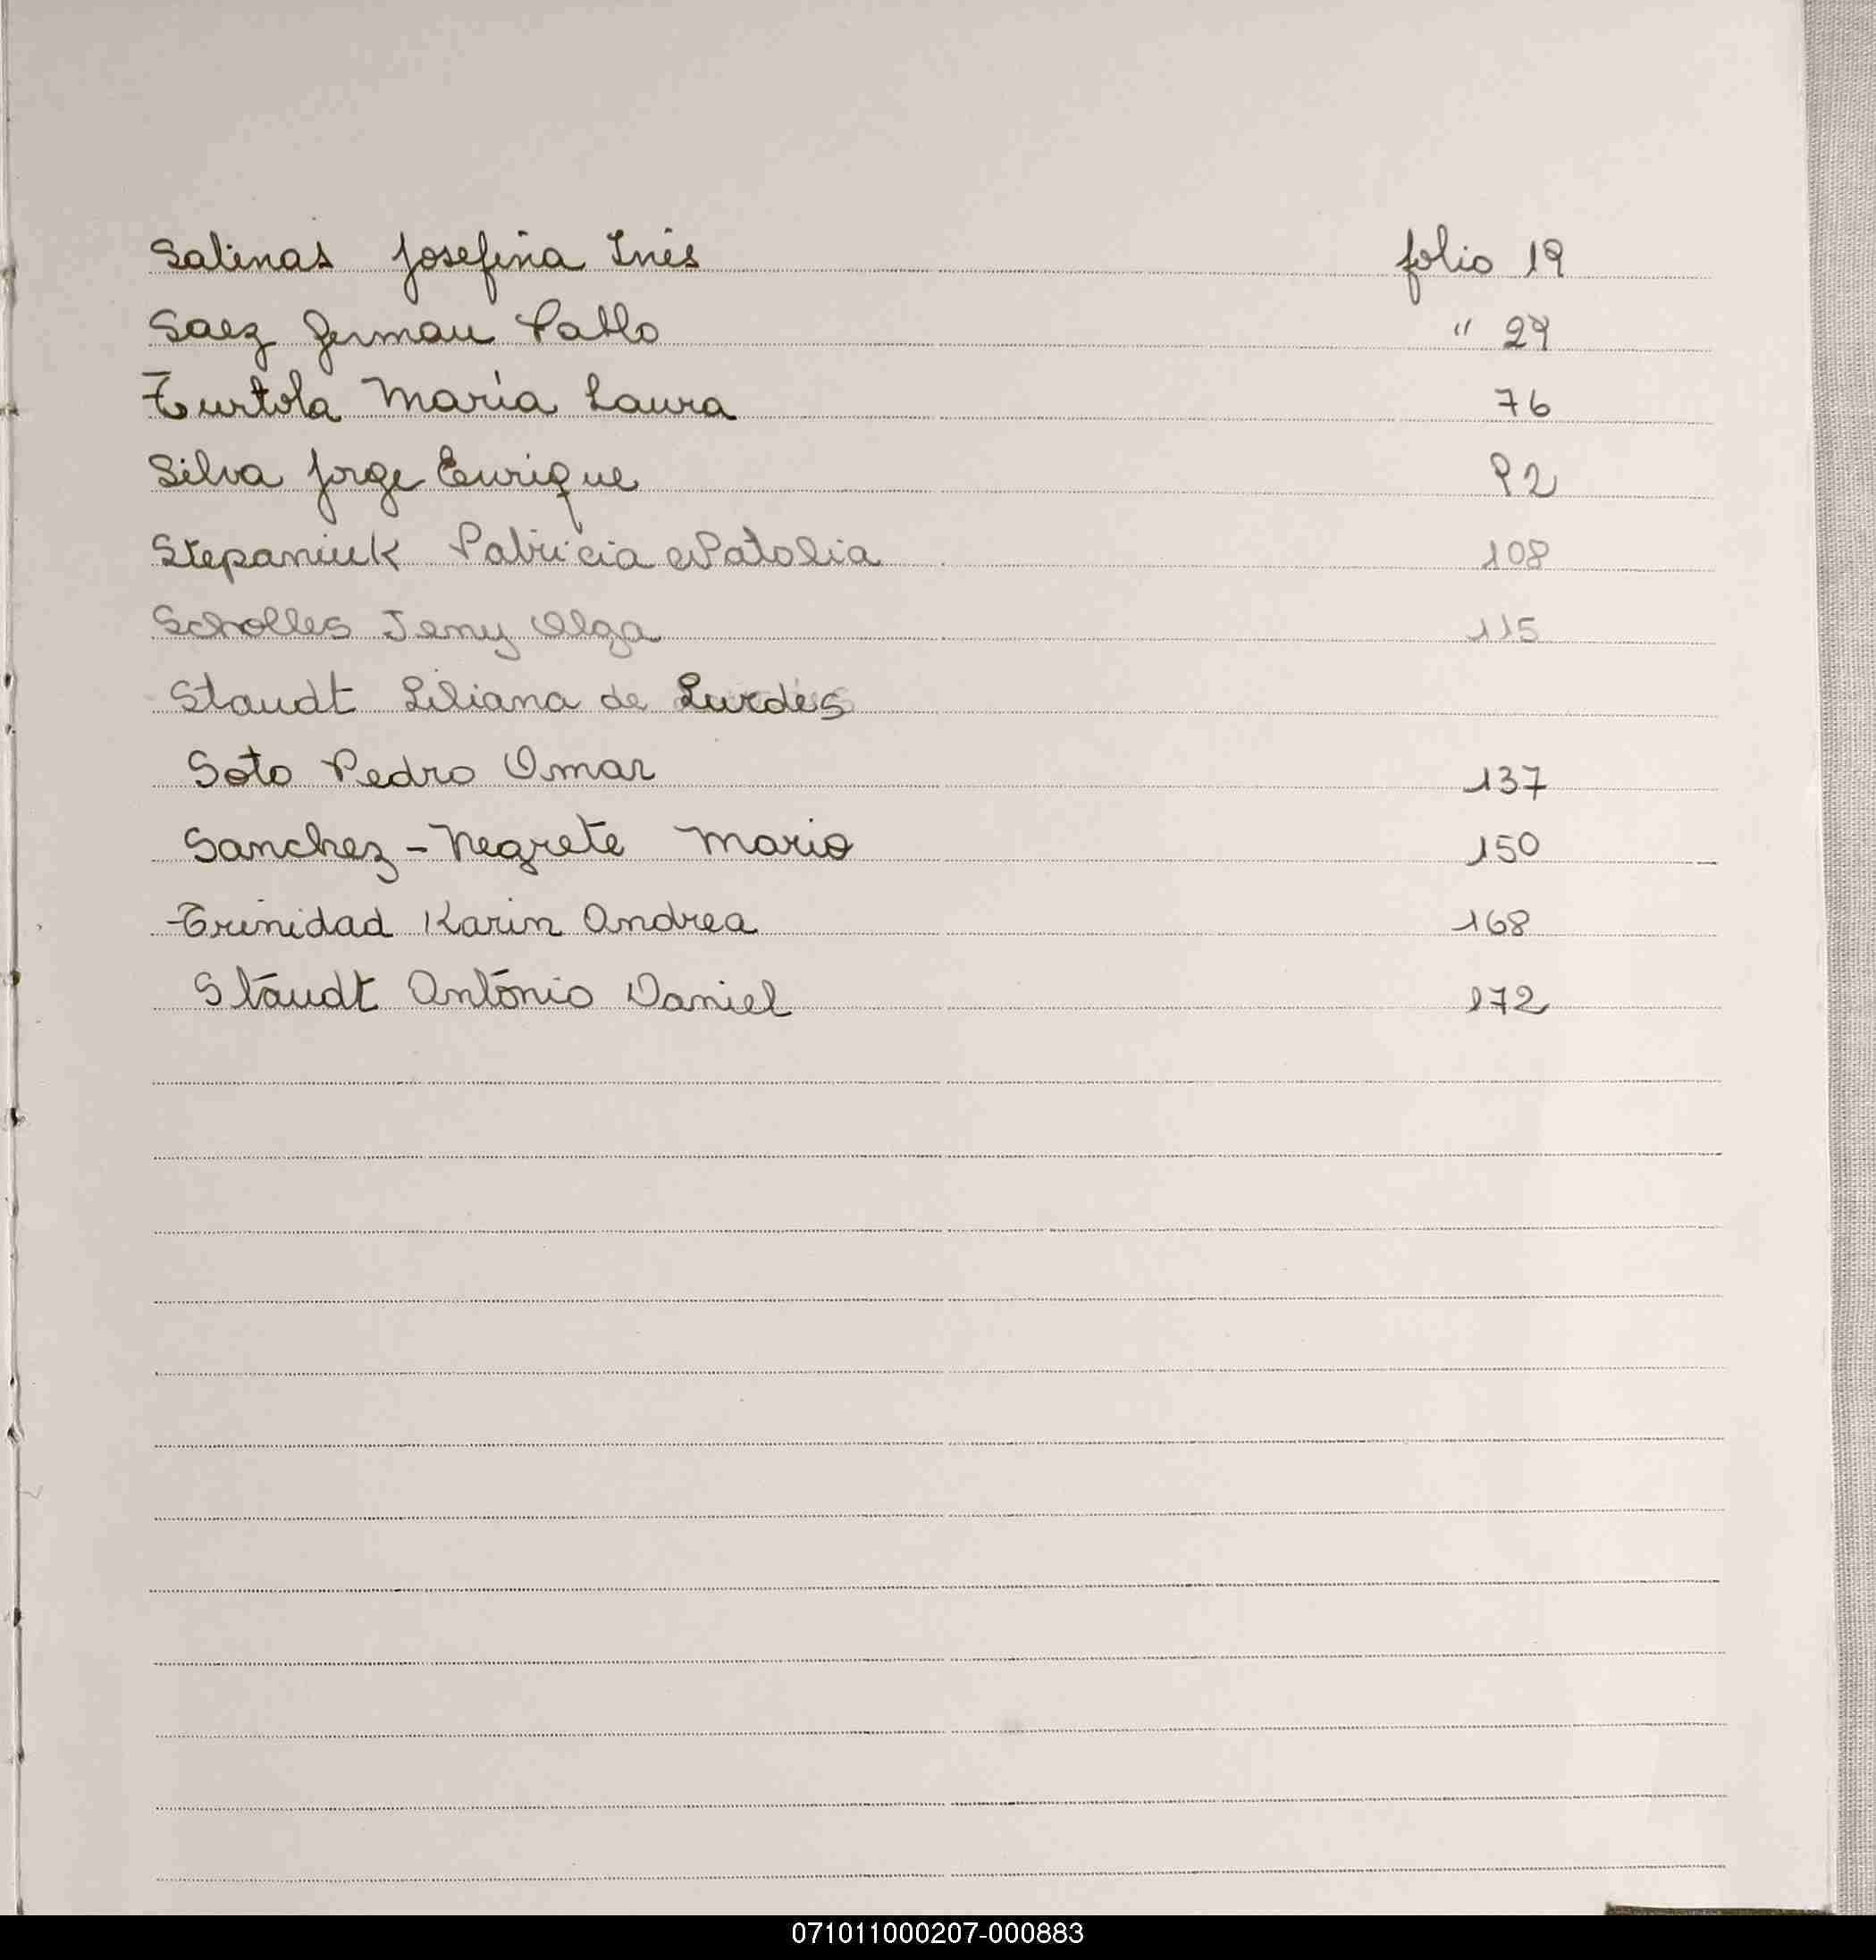 Salinas Josefina Inés folio 19
Saez German Pablo " 29
Turtola María Laura 76
Silva Jorge Enrique 92
Stepaniuk Patricia Natalia 108
Scholles Jeny Olga 115
Staudt Liliana de Lurdes
Soto Pedro Omar 137
Sanchez-Negrete Mario 150
Trinidad Karin Andrea 168
Staudt Antonio Daniel 172
071011000207-000883